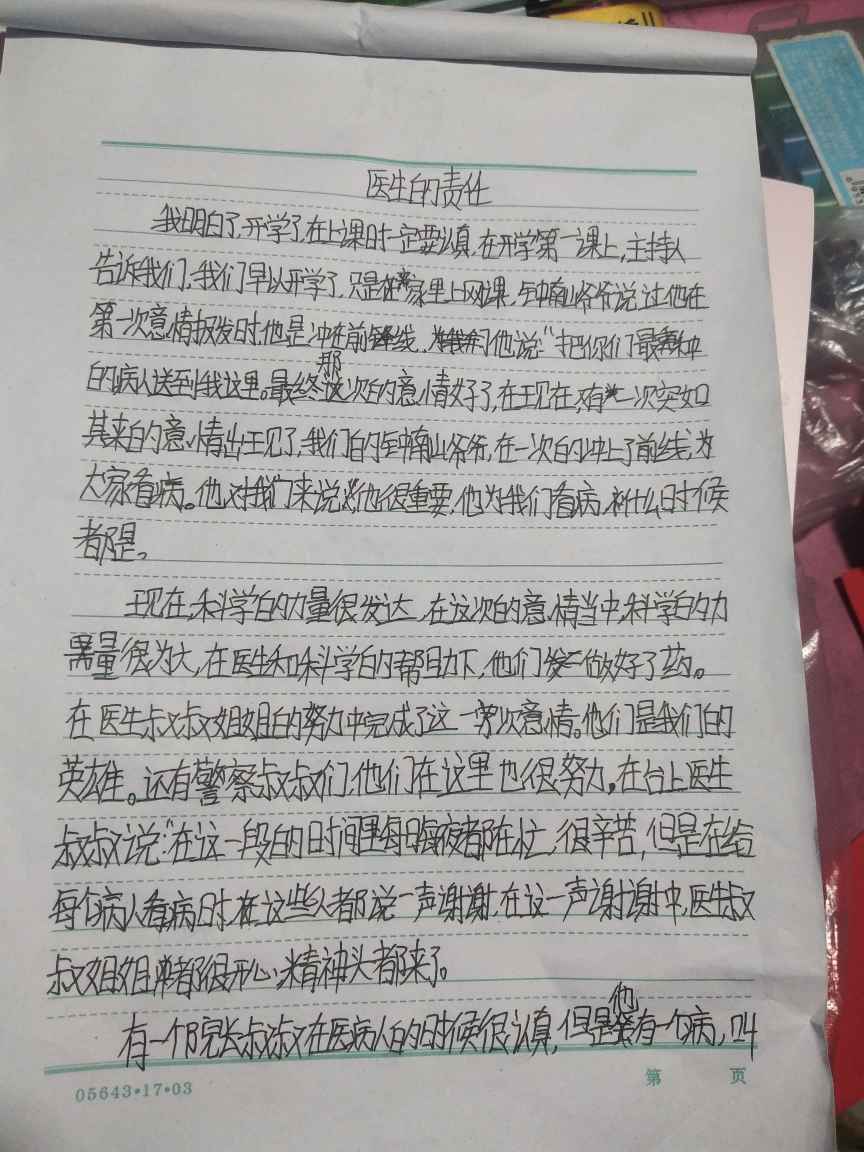 医生的责任
我明白了,开学了,在上课时一定要认真,在开学第一课上,主持人
告诉我们,我们早以开学了,只是在家里上网课,钟南山爷爷说过他在
第一次意情报发时,他是冲在前线,他说:"把你们最重
的病人送到我这里。最终那次的意情好了,在现在,有一次突如
其来的意情出现了,我们的钟南山爷爷,在一次的冲上了前线,为
大家看病。他对我们来说他很重要,他为我们看病,什么时候
都是。
现在,科学的力量很发达,在这次的意情当中,科学的力
量很为大,在医生和科学的帮助下,他们做好了药。
在医生叔叔姐姐的努力中完成了这一次意情。他们是我们的
英雄。还有警察叔叔们,他们在这里也很努力。在台上医生
叔叔说:"在这一段的时间里每日每夜都在忙,很辛苦,但是在给
每个病人看病时,在这些人都说一声谢谢,在这一声谢谢中,医生叔
叔姐姐都很开心,精神头都来了。
有一个院长叔叔在医病人的时候很认真,但是他有一个病,叫
05643·17·03
第 页